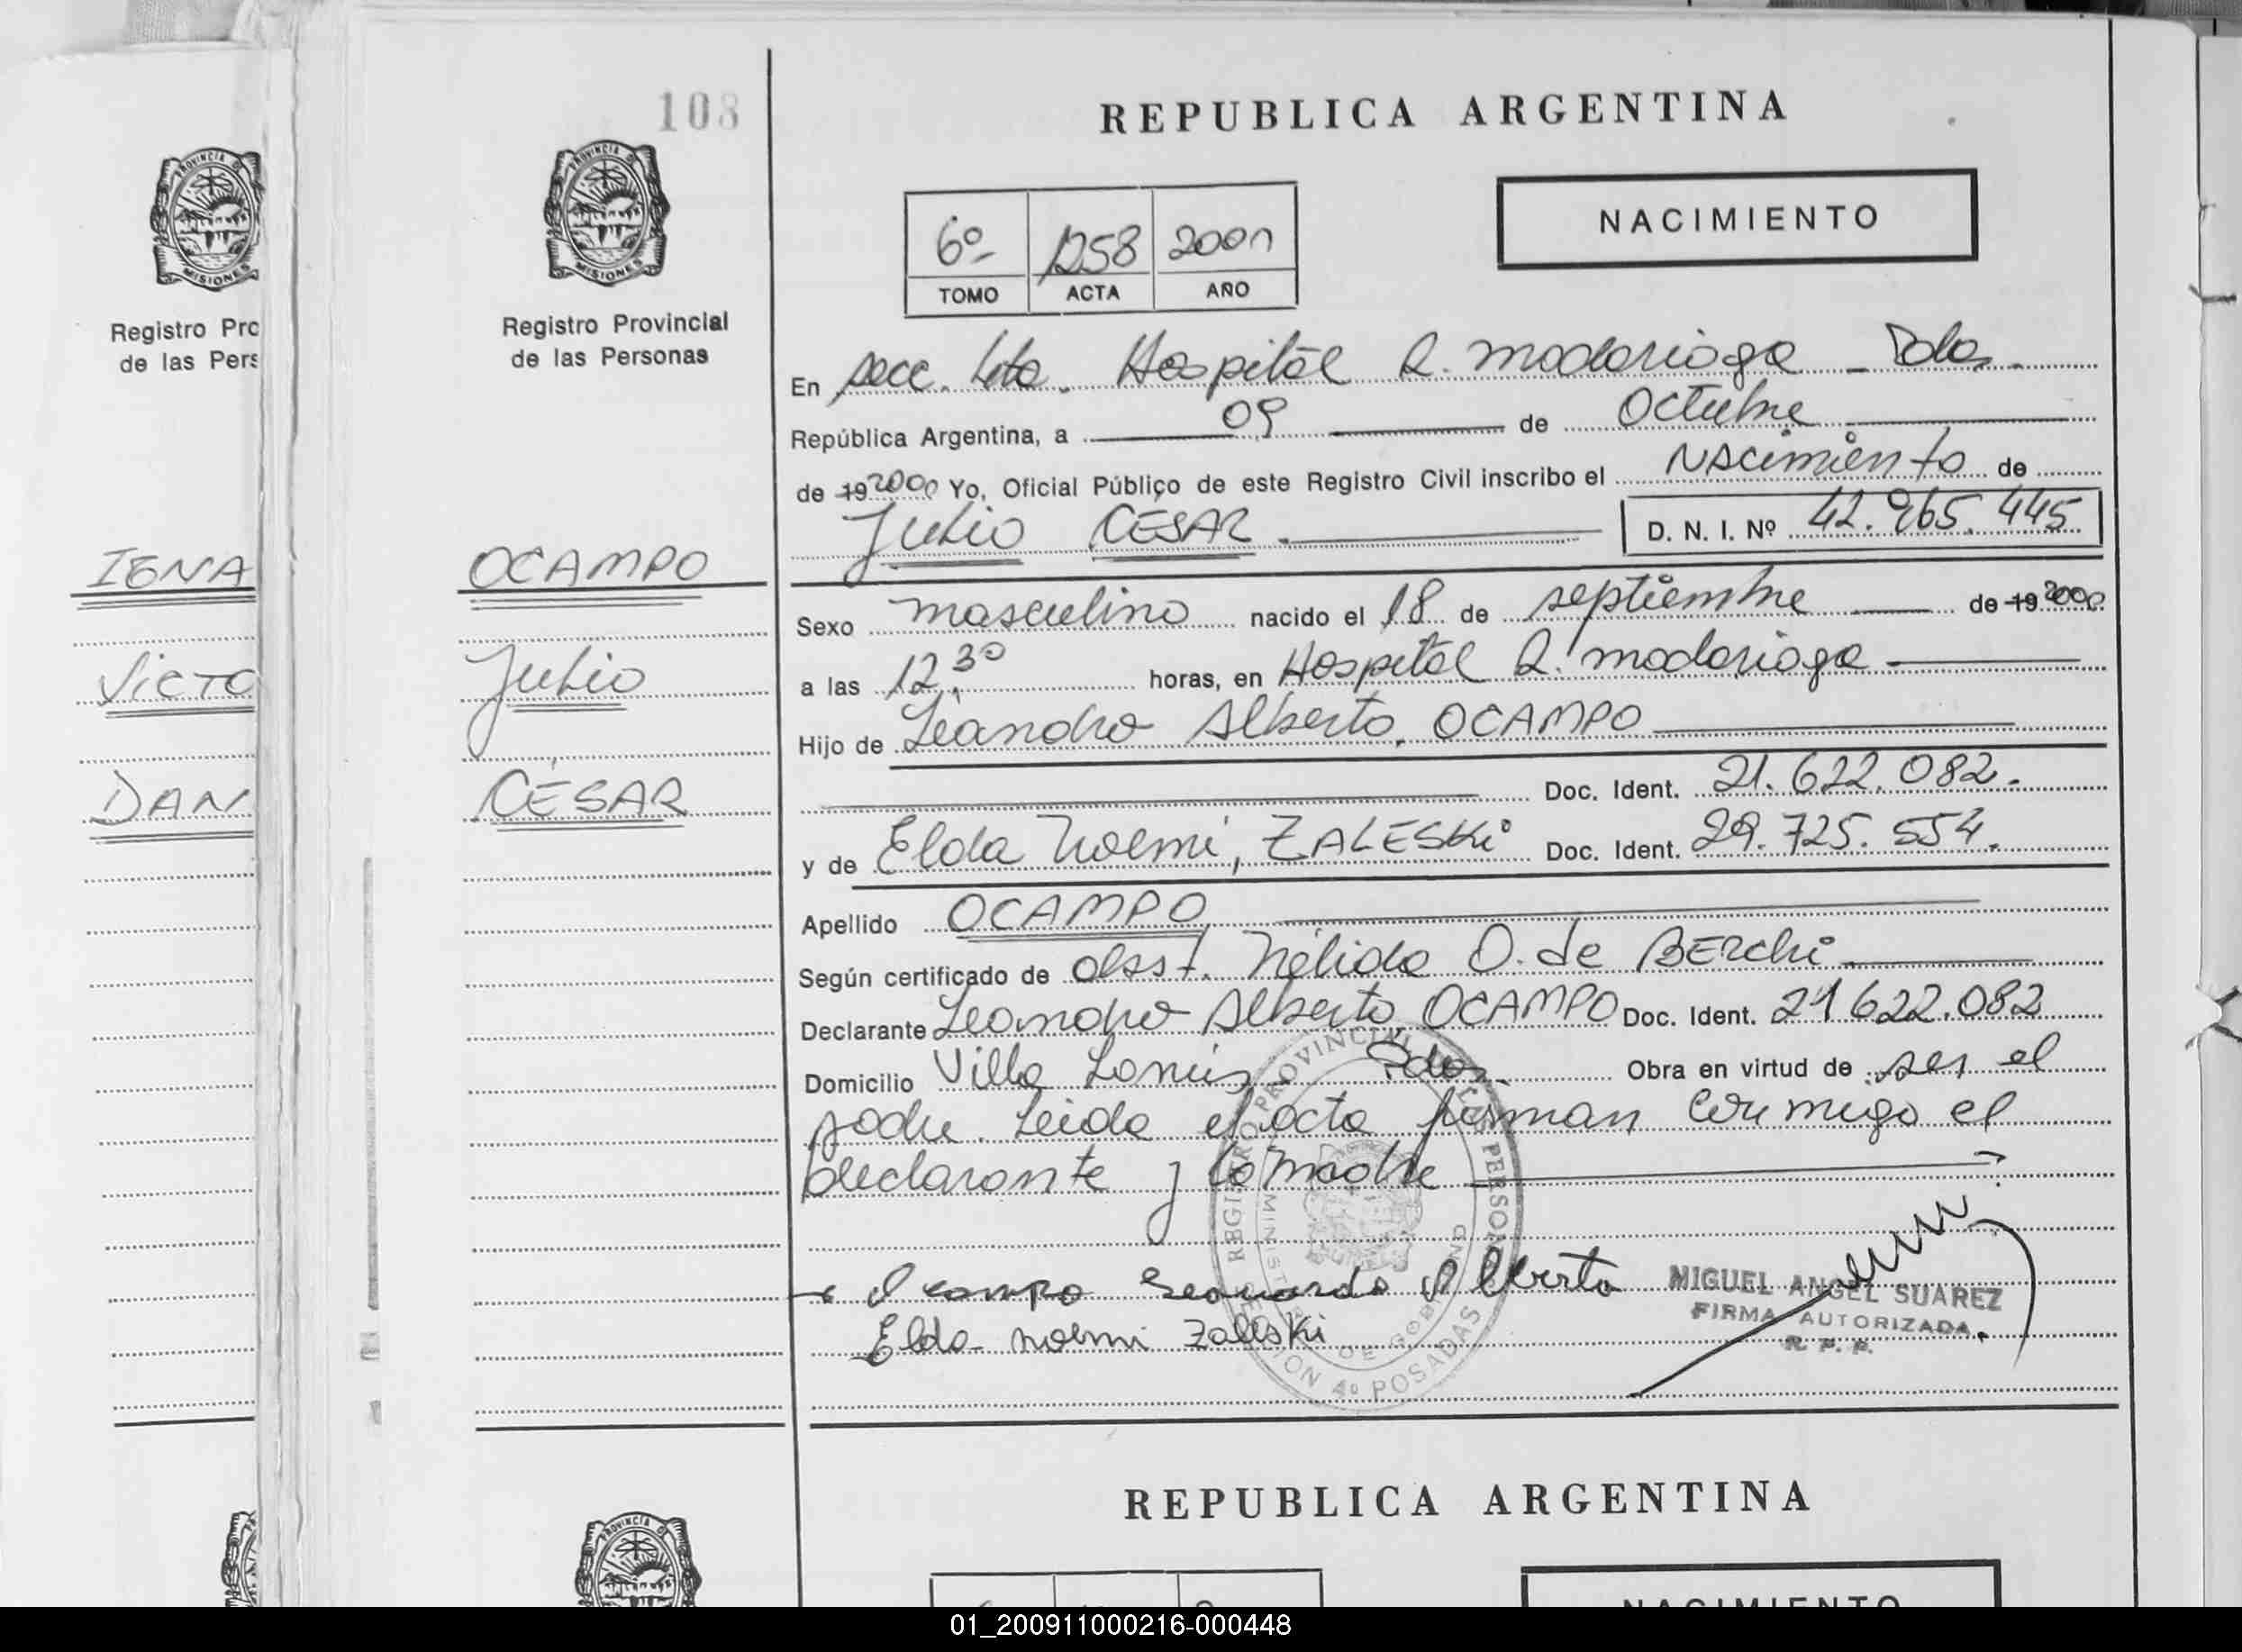 108
REPUBLICA ARGENTINA
PROVINCIA D
MISIONES
PROVINCIA D
MISIONES
NACIMIENTO
6º 1258 2000
TOMO ACTA AÑO
Registro Pro
de las Pers
Registro Provincial
de las Personas
En secc. 4ta. Hospital R. madariaga - Pdas.
República Argentina, a 09 de Octubre
de 19 2000 Yo, Oficial Público de este Registro Civil inscribo el NAcimiento de
Julio CÉSAR. D. N. I. Nº 42.965.445
IGNA
OCAMPO
Sexo masculino nacido el 18 de septiembre de 19 2000
VICTO
Julio
a las 12.30 horas, en Hospital R. madariaga
Hijo de Leandro Alberto, OCAMPO
Doc. Ident. 21.622.082.
DAN
CÉSAR
y de Elda Noemi, ZALESKi Doc. Ident. 29.725.554.
Apellido OCAMPO
Según certificado de obst. Nélida O. de BERchi
Declarante Leandro Alberto, OCAMPO Doc. Ident. 21622.082
Domicilio Villa Lanús - Pdas. Obra en virtud de ser el
padre. Leida el acta firman conmigo el
declarante y la madre
REGISTRO PROVINCIAL DE LAS PERSONAS
MINISTERIO DE GOBIERNO
SECCION 4º POSADAS
Ocampo Leonardo Alberto
Elda noemi Zaleski
MIGUEL ANGEL SUAREZ
FIRMA AUTORIZADA
R. P. P.
REPUBLICA ARGENTINA
PROVINCIA D
NACIMIENTO
01_200911000216-000448